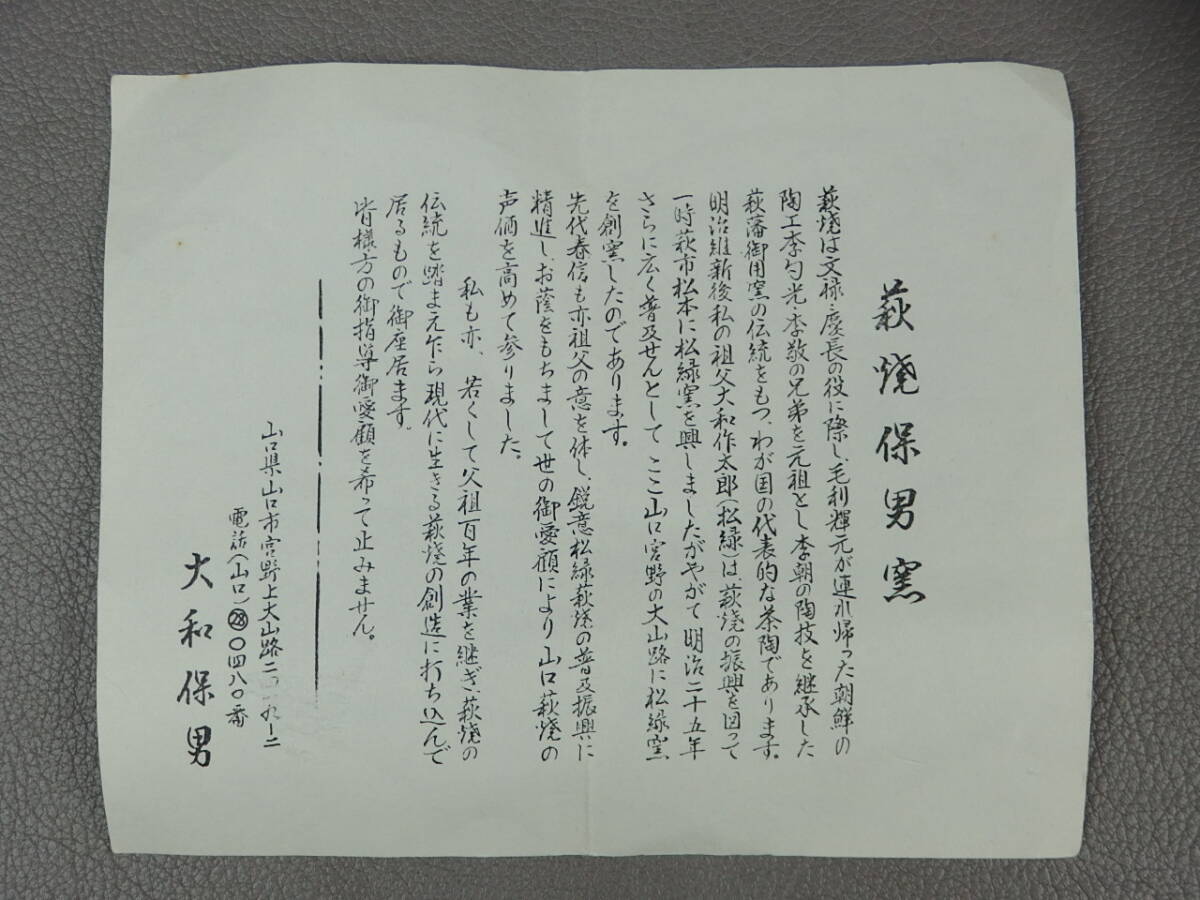 萩焼保男窯
萩焼は文禄・慶長の役に際し、毛利輝元が連れ帰った朝鮮の
陶工李勺光・李敬の兄弟を元祖とし李朝の陶技を継承した
萩藩御用窯の伝統をもつ、わが国の代表的な茶陶であります。
明治維新後私の祖父大和作太郎(松緑)は、萩焼の振興を図って
一時萩市松本に松緑窯を興しましたがやがて明治二十五年
さらに広く普及せんとしてここ山口宮野の大山路に松緑窯
を創窯したのであります。
先代春信も亦祖父の意を体し、鋭意松緑萩焼の普及振興に
精進し、お蔭をもちまして世の御愛顧により山口萩焼の
声価を高めて参りました。
私も亦、若くして父祖百年の業を継ぎ、萩焼の
伝統を踏まえ乍ら現代に生きる萩焼の創造に打ち込んで
居るもので御座居ます。
皆様方の御指導御愛顧を希って止みません。
山口県山口市宮野上大山路二
電話(山口)㉘〇四八〇番
大和保男